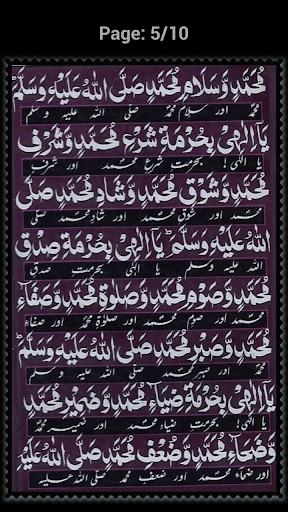 Page: 5/10
مُحَمَّدٍ وَّسَلَامِ مُحَمَّدٍ صَلَّى اللهُ عَلَيْهِ وَسَلَّمَ
محمدؐ اور سلام محمدؐ صلی اللہ علیہ و سلم
يَا اِلٰهِىْ بِحُرْمَةِ شَرْعِ مُحَمَّدٍ وَّشَرَفِ
یا الٰہی! بحرمت شرع محمدؐ اور شرف
مُحَمَّدٍ وَّشَوْقِ مُحَمَّدٍ وَّشَادِ مُحَمَّدٍ صَلَّى
محمدؐ اور شوق محمدؐ اور شاد محمدؐ صلی
اللهُ عَلَيْهِ وَسَلَّمَ ؕ يَا اِلٰهِىْ بِحُرْمَةِ صِدْقِ
اللہ علیہ وسلم یا الٰہی بحرمت صدق
مُحَمَّدٍ وَّصَوْمِ مُحَمَّدٍ وَّصَلٰوةِ مُحَمَّدٍ وَّصَفَآءِ
محمدؐ اور صوم محمدؐ اور صلوٰۃ محمدؐ اور صفاء
مُحَمَّدٍ وَّصَبْرِ مُحَمَّدٍ صَلَّى اللهُ عَلَيْهِ وَسَلَّمَ ؕ
محمدؐ اور صبر محمدؐ صلی اللہ علیہ و سلم
يَا اِلٰهِىْ بِحُرْمَةِ ضِيَآءِ مُحَمَّدٍ وَّضَمِيْرِ مُحَمَّدٍ
یا الٰہی! بحرمت ضیاء محمدؐ اور ضمیر محمدؐ
وَّضُحَآءِ مُحَمَّدٍ وَّضُعْفِ مُحَمَّدٍ صَلَّى اللهُ عَلَيْهِ
اور ضحاء محمدؐ اور ضعف محمدؐ صلی اللہ علیہ